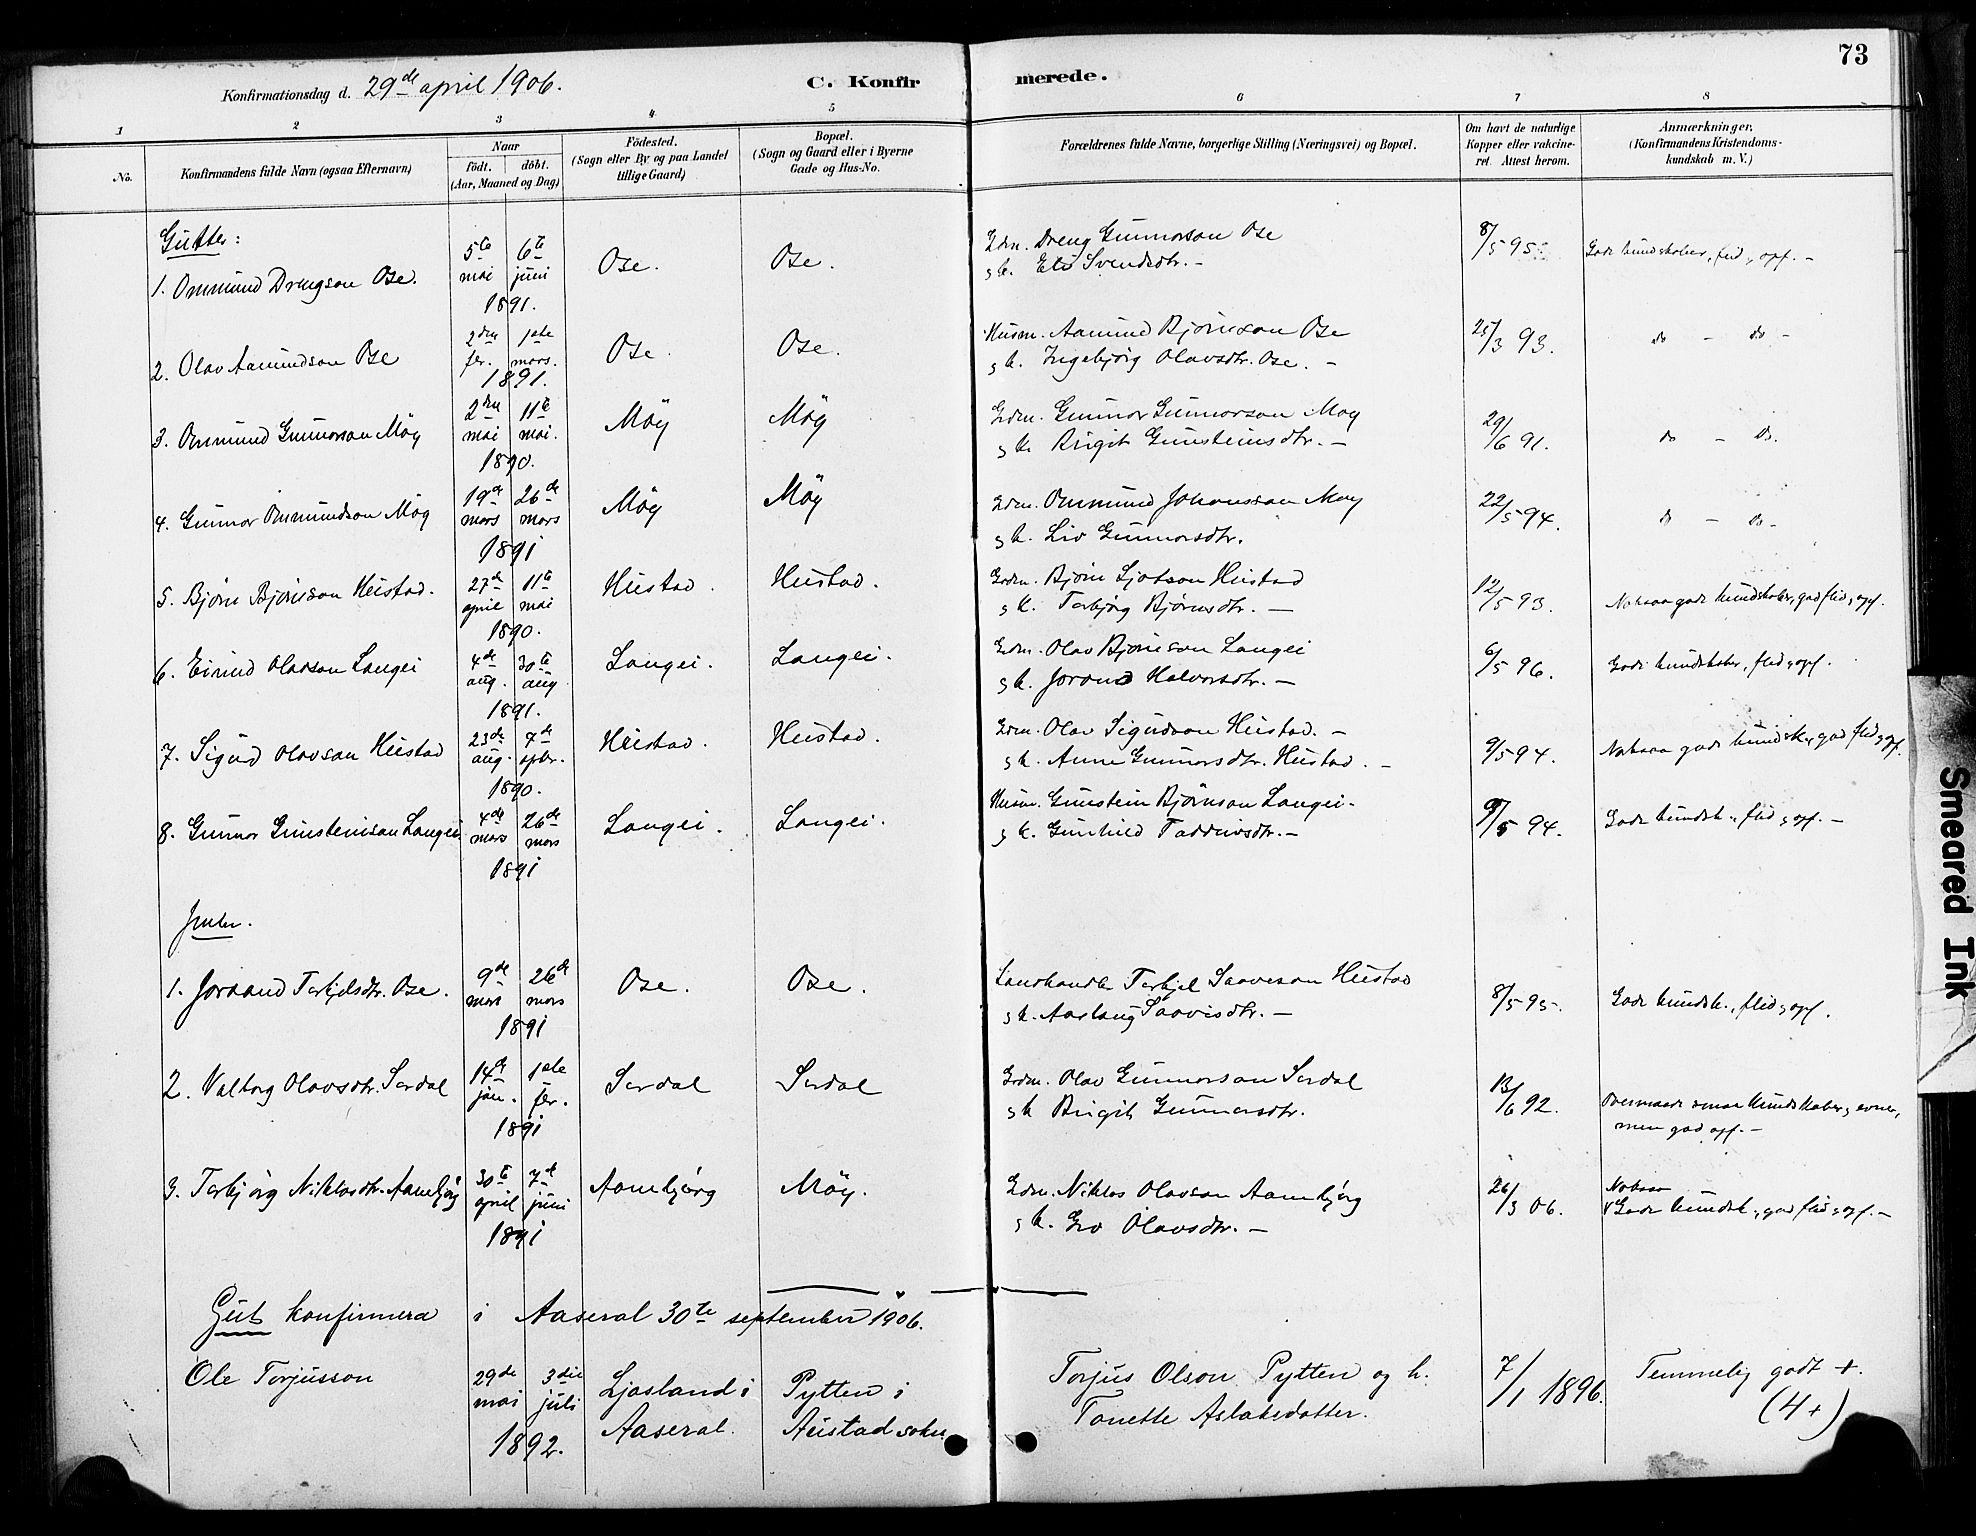 73
Konfirmationsdag d. 29de april 1906.
C. Konfirmerede.
1 2 3 4 5 6 7 8
No.
Konfirmandens fulde Navn (ogsaa Efternavn)
Naar
födt. döbt.
(Aar, Maaned og Dag)
Födested.
(Sogn eller By og paa Landet
tillige Gaard)
Bopæl.
(Sogn og Gaard eller i Byerne
Gade og Hus-No.
Forældrenes fulde Navne, borgerlige Stilling (Næringsvei) og Bopæl.
Om havt de naturlige
Kopper eller vakcine-
ret. Attest herom.
Anmærkninger.
(Konfirmandens Kristendoms-
kundskab m. V.)
Gutter:
1. Ommund Drengson Ose. 5te mai 6te juni 1891. Ose. Ose. Grdm. Dreng Gunnarson Ose 8/5 95. Gode kundskaber, flid, opf. -
g k. Eli Svendsdtr. -
2. Olav Aamundson Ose 2den fer. 1ste mars. 1891. Ose. Ose. Husm. Aamund Bjørnson Ose 25/3 93. do - do -
g k. Ingebjørg Olavsdtr. Ose. -
3. Ommund Gunnarson Möy 2den mai 11te mai. 1890. Möy Möy Grdm. Gunnar Gunnarson Moy 29/6 91. do - do.
g k. Birgit Gunsteinsdtr. -
4. Gunnar Ommundson Möy 19de mars 26de mars 1891 Möy Möy Grdm. Ommund Johansson Moy 22/5 94. do - do -
g k. Liv Gunnarsdtr.
5. Bjørn Bjørnson Heistad. 27de april 11te mai 1890. Heistad. Heistad. Grdm. Bjørn Ljotson Heistad 12/5 93. Noksaa gode kundskaber, god flid, opf.
g k. Torbjørg Bjørnsdtr. -
6. Eivind Olavson Langei 4de aug. 30te aug 1891. Langei. Langei. Grdm. Olav Bjørnson Langei 6/5 96. Gode kundskaber, flid, opf.
g k. Jorand Halvorsdtr. -
7. Sigurd Olavson Heistad 23de aug. 7de spbr. 1890. Heistad. Heistad. Grdm. Olav Sigurdson Heistad. - 9/5 94. Noksaa gode kundsk., god flid, opf.
g k. Anne Gunnarsdtr. Heistad. -
8. Gunnar Gunsteinson Langei 4de mars 26de mars 1891 Langei. Langei. Husm. Gunstein Bjørnson Langei. 9/5 94. Gode kundsk., flid, opf. -
g k. Gunhild Taddeivsdtr. -
Jenter.
1. Joraand Torkjelsdtr. Ose. 9de mars 26de mars 1891 Ose. Ose. Landhandler Torkjel Saaveson Heistad 8/5 95. Gode kundsk., flid, opf.
g k. Aaslaug Saavisdtr. -
2. Valborg Olavsdtr. Serdal 14de jan. 1ste fer. 1891 Serdal Serdal Grdm. Olav Gunnarson Serdal 13/6 92. Overmaade svage kundskaber, evner,
g k Birgit Gunnarsdtr. men god opf. -
3. Torbjørg Niklasdtr. Aamlijørg 30te april 7de juni 1891 Möy. Grdm. Niklas Olavson 26/3 06. Noksaa
Gode kundsk., god flid, opf. -
g k. Gro Olavsdtr. -
Gut konfirmera i Aaseral 30te september 1906.
Ole Torjusson 29de mai 3die juli 1892. Ljosland i Pytten i Torjus Olson Pytten og h. 7/1 1896. Temmelig godt +.
Aaseral. Austad sokn Tonette Aslaksdatter. (4+)
Smeared Ink